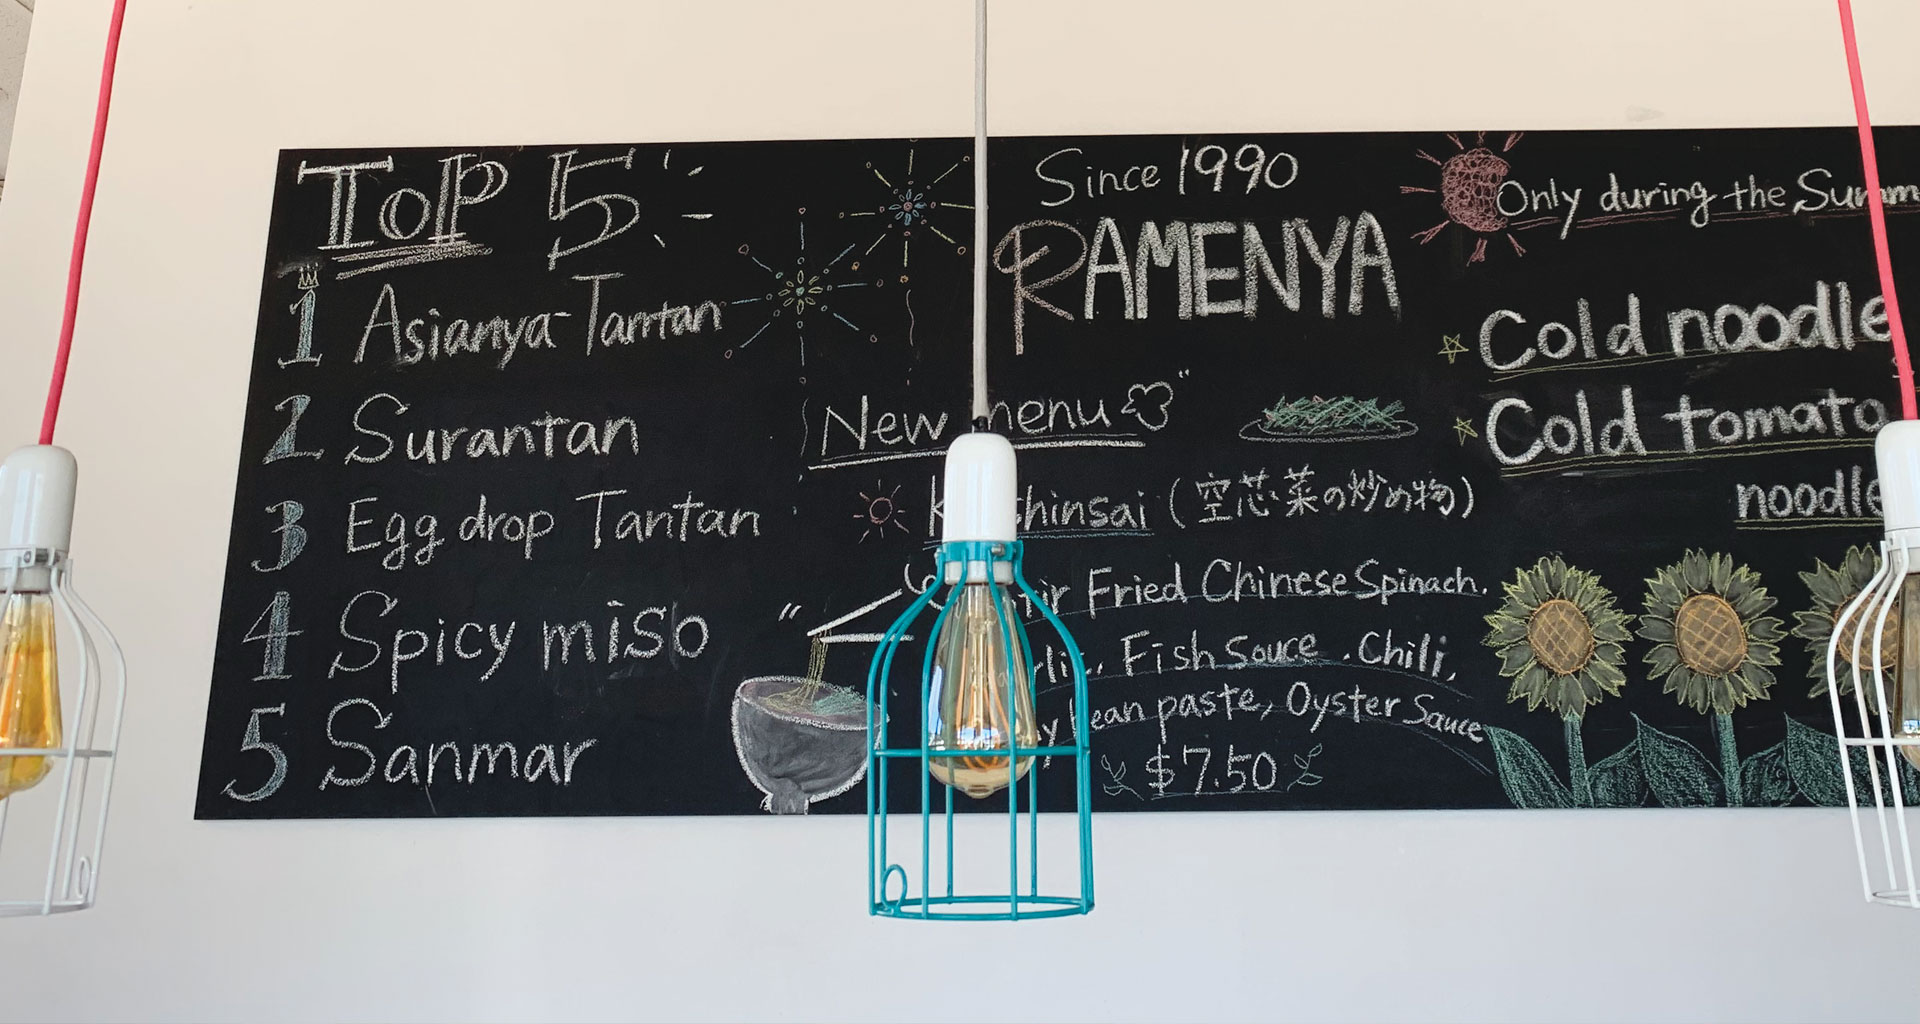 Top 5
1 Asianya Tantan
2 Surantan
3 Egg drop Tantan
4 Spicy miso
5 Sanmar
Since 1990
RAMENYA
New menu
(空芯菜の炒め物)
Fried Chinese Spinach.
Fish Souce . Chili,
bean paste, Oyster Sauce
$7.50
Only during the
Cold
Cold tomato